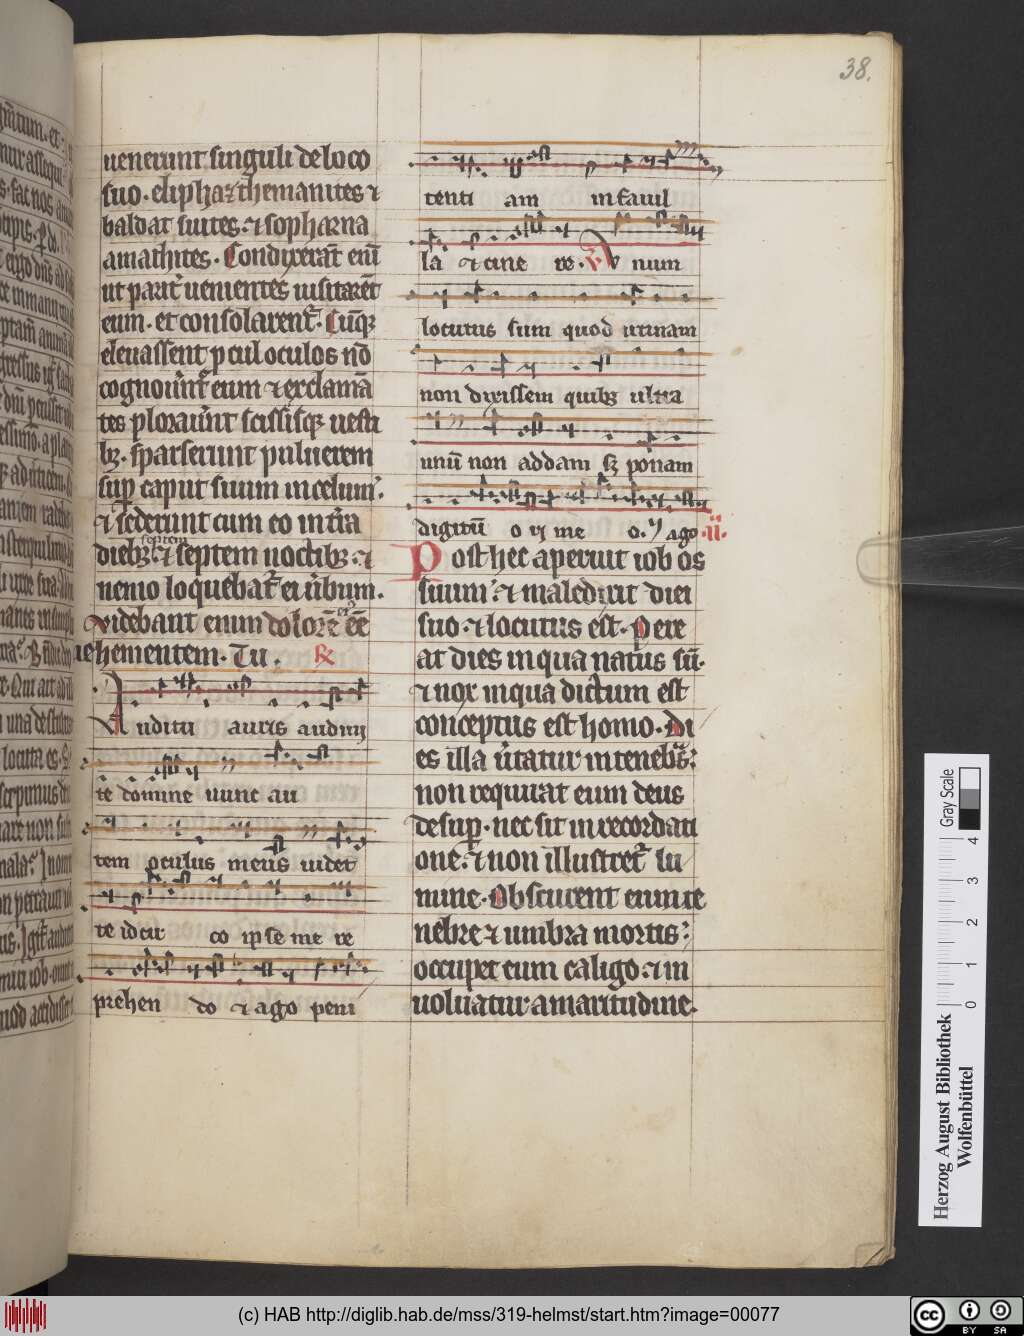 38.
uenerunt singuli de loco
suo. eliphaz themanites ⁊
baldat suites. ⁊ sophar na
amathites. Condixerāt enī
ut parit̄ uenientes uisitarēt
eum. et consolarent̄. Cūq̄
eleuassent pcul oculos nō
cognouūt eum ⁊ exclamā
tes plorauūt scissisq̄ uesti
bꝫ. sparserunt puluerem
sup̄ caput suum in celum.
⁊ sederunt cum eo in t̄ra
septem
diebꝫ. ⁊ septem noctibꝫ. ⁊
nemo loquebat̄ ei ūbum.
videbant enim dolorē eē
uehementem. Tu. ℟
Auditu auris audiui
te domine nunc au
tem oculus meus uidet
te idcir co ipse me re
prehen do ⁊ ago peni
tenti am in fauil
la ⁊ cine re. V num
locutus sum quod utinam
non dixissem quibꝫ ultra
unū non addam sꝫ ponam
digitū o ri me o. ⁊ ago .ii.
Post hec aperuit iob os
suum. ⁊ maledixit diei
suo. ⁊ locutus est. Pere
at dies in qua natus sū.
⁊ nox in qua dictum est
conceptus est homo. Di
es illa ūtatur in tenebᵃs.
non requirat eum deus
desup̄. nec sit in recordati
one. ⁊ non illustret̄ lu
mine. Obscurent eum te
nebre ⁊ umbra mortis.
occupet eum caligo. ⁊ in
uoluatur amaritudine.
Herzog August Bibliothek
Wolfenbüttel
0 1 2 3 4
Gray Scale
(c) HAB http://diglib.hab.de/mss/319-helmst/start.htm?image=00077
cc BY SA